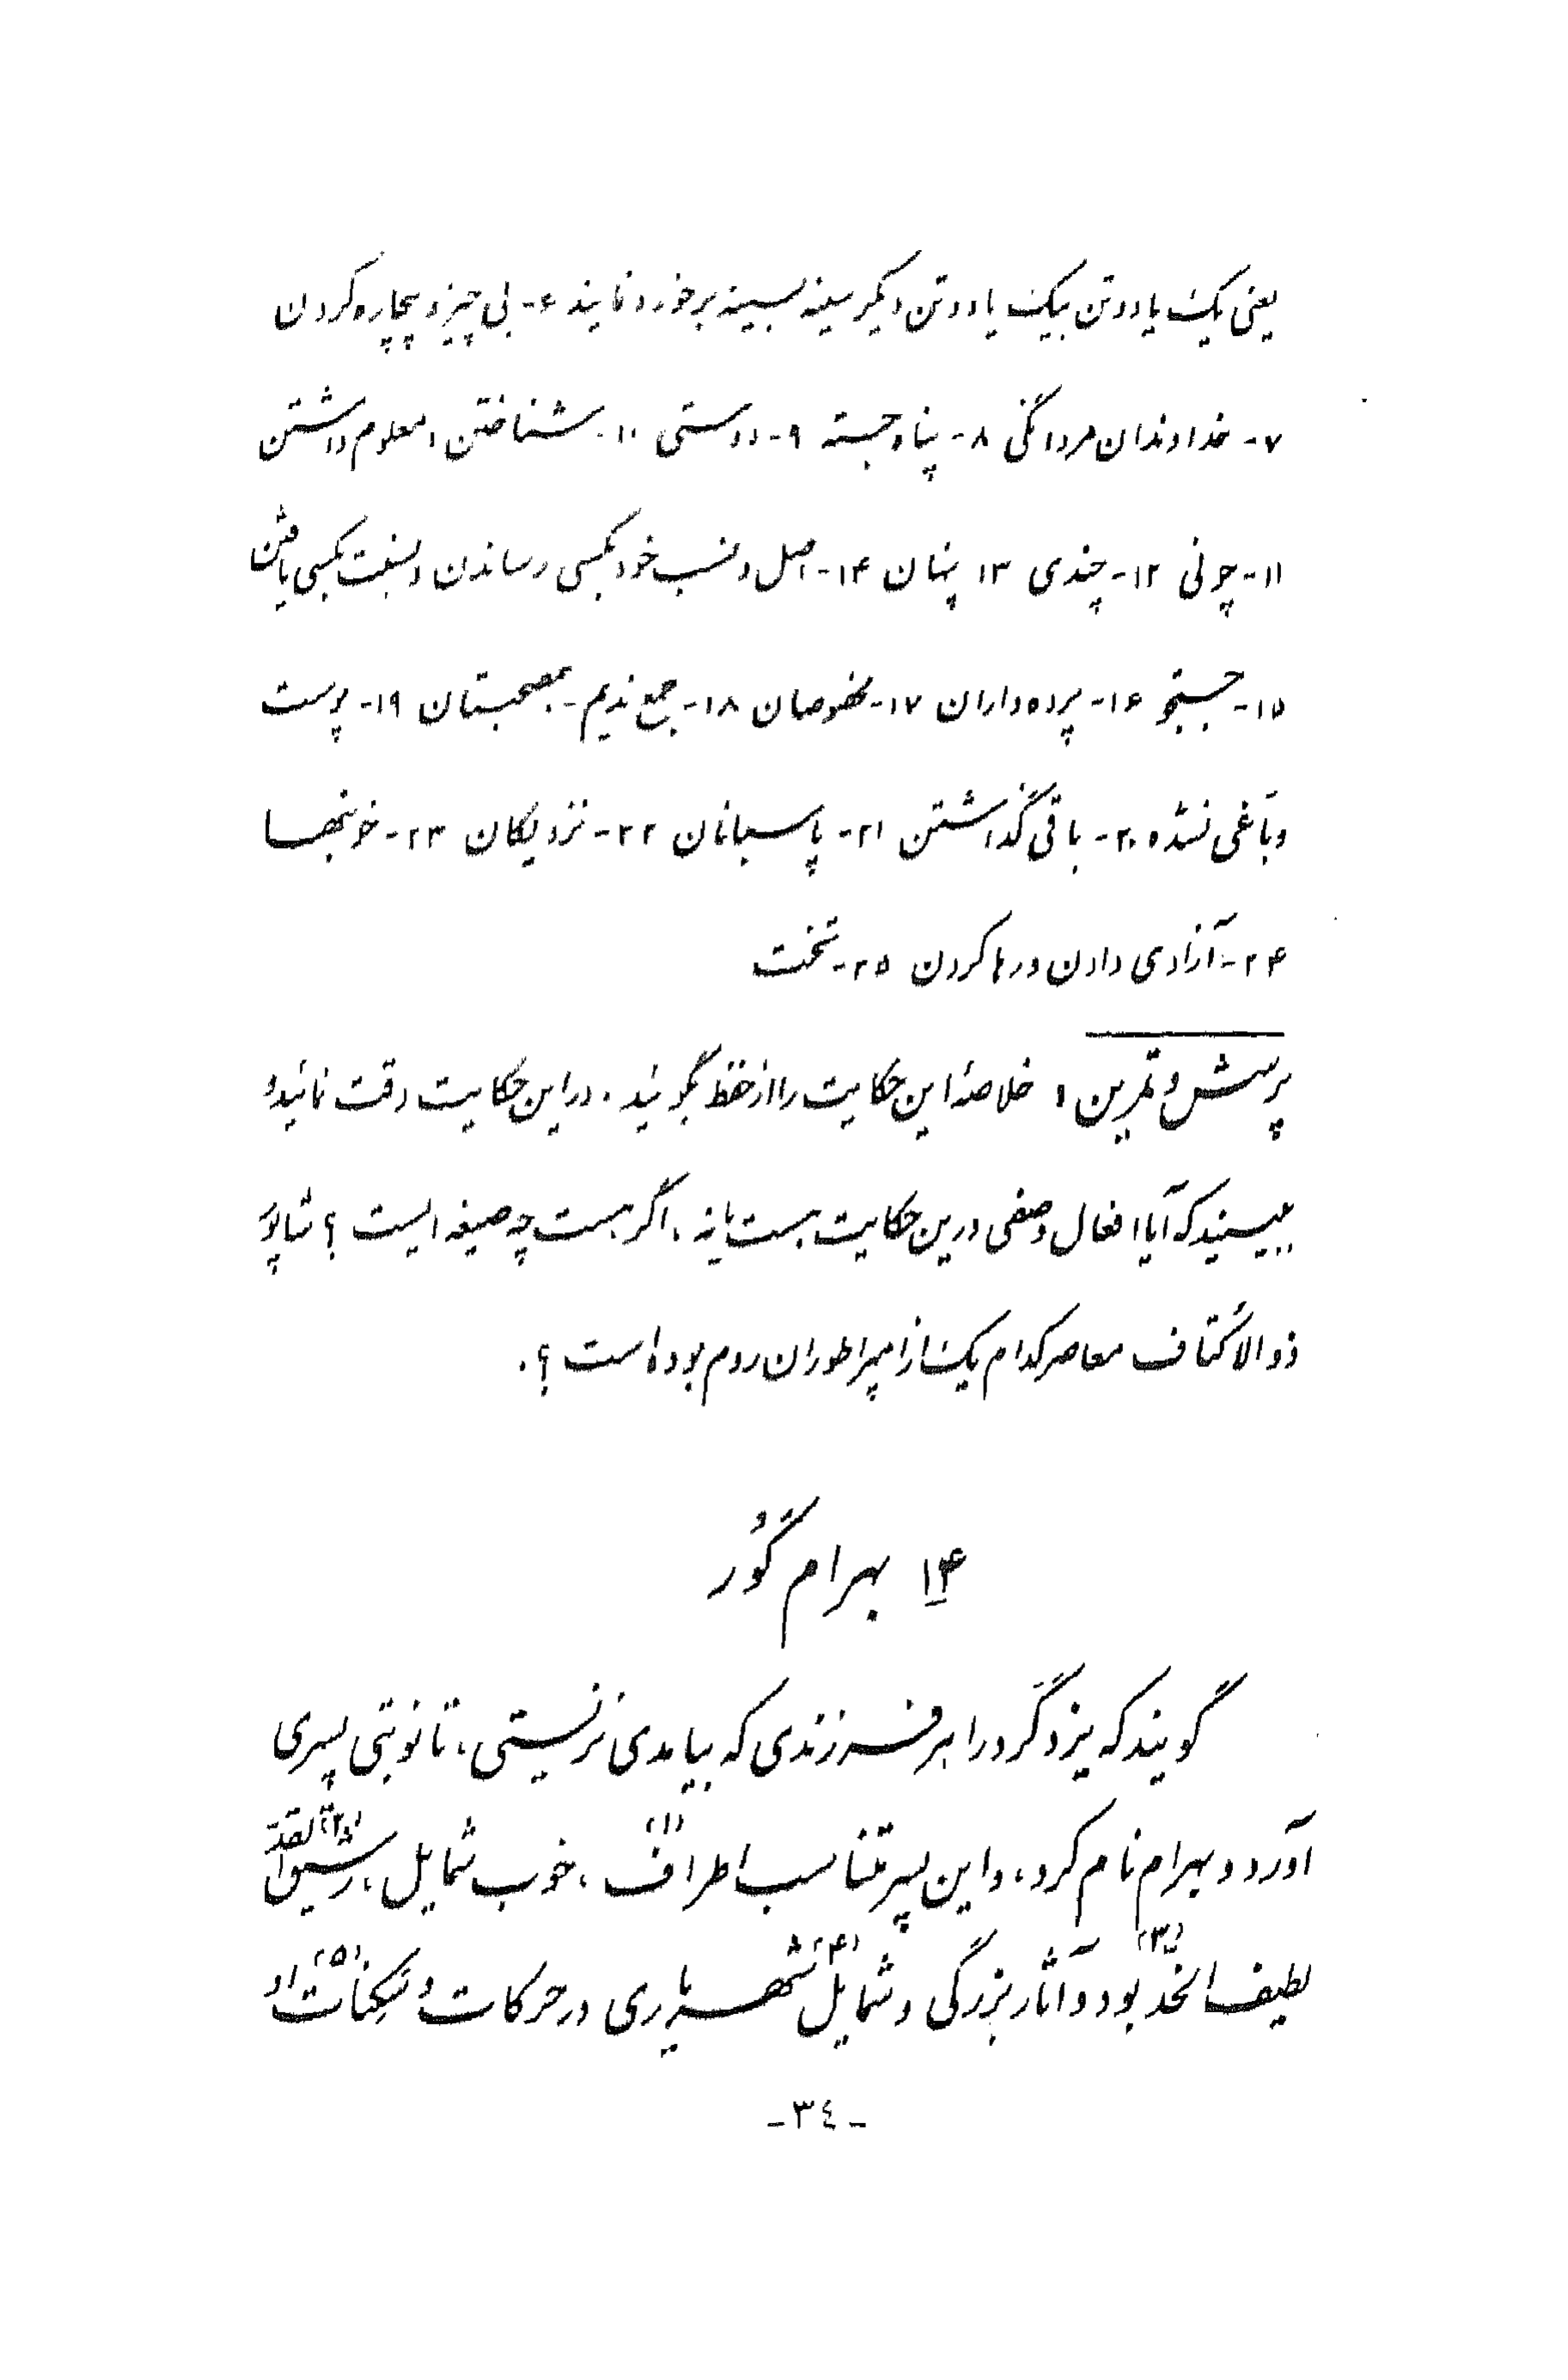 یعنی یک یا دو تن بیک یا دو تن دیگر سینه بسینه برخورد نمایند ۶- بی چیز و بیچاره کردن
۷- خداوندان مردانگی ۸- پناه جسته ۹- دوستی ۱۰- شناختن، معلوم داشتن
۱۱- چونی ۱۲- چندی ۱۳ پنهان ۱۴- اصل و نسب خود بکسی رساندن و نسبت بکسی یافتن
۱۵- جستجو ۱۶- پرده‌داران ۱۷- مخصوصان ۱۸- جمع ندیم - همصحبتان ۱۹- پوست
دباغی نشده ۲۰- باقی گذاشتن ۲۱- پاسبانان ۲۲- نزدیکان ۲۳- خونبها
۲۴- آزادی دادن و رها کردن ۲۵- تخت
پرسش و تمرین : خلاصهٔ این حکایت را از حفظ بگوئید. در این حکایت دقت نمائید و
ببینید که آیا افعال وصفی درین حکایت هست یا نه، اگر هست چه صیغه ایست ؟ شاپور
ذوالاکتاف معاصر کدام یک از امپراطوران روم بوده است ؟.
۱۴ بهرام گُور
گویند که یزدگرد را هر فرزندی که بیامدی نزیستی، تا نوبتی پسری
آورد و بهرام نام کرد، و این پسر متناسب اطراف (۱)، خوب شمایل، رشیق القدّ (۲)
لطیف الخدّ (۳) بود و آثار بزرگی و شمایل (۴) شهریاری در حرکات و سَکِنات (۵) او
-٣٤-